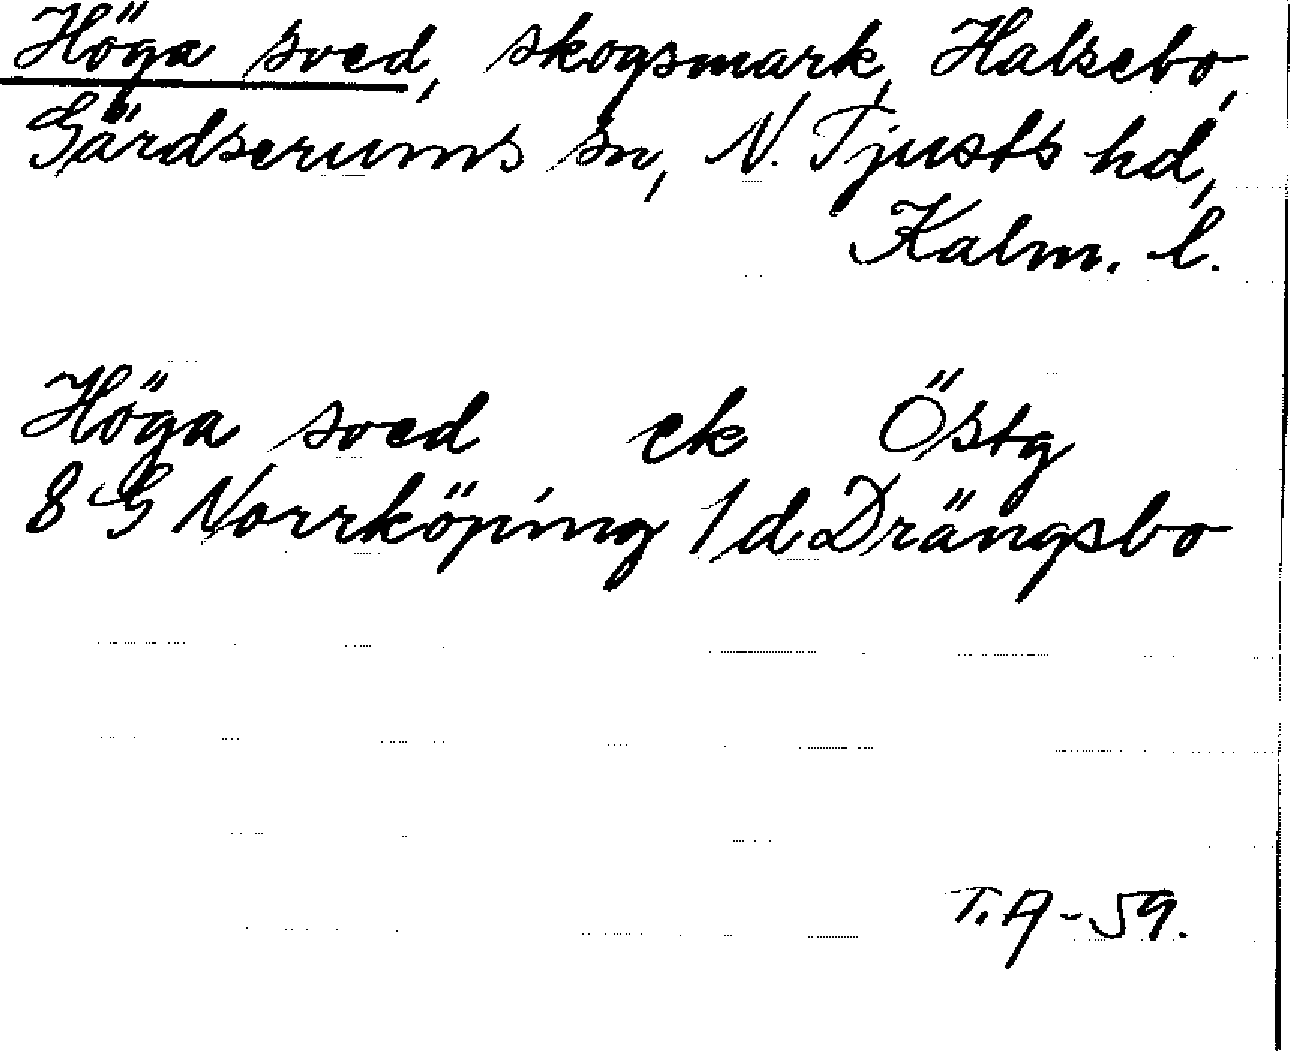 Höga sved, skogsmark, Halsebo,
Gärdserums sn, N. Tjusts hd,
Kalm. l.
Höga sved ek Östg
8 G Norrköping 1 d Drängsbo
T.A-59.